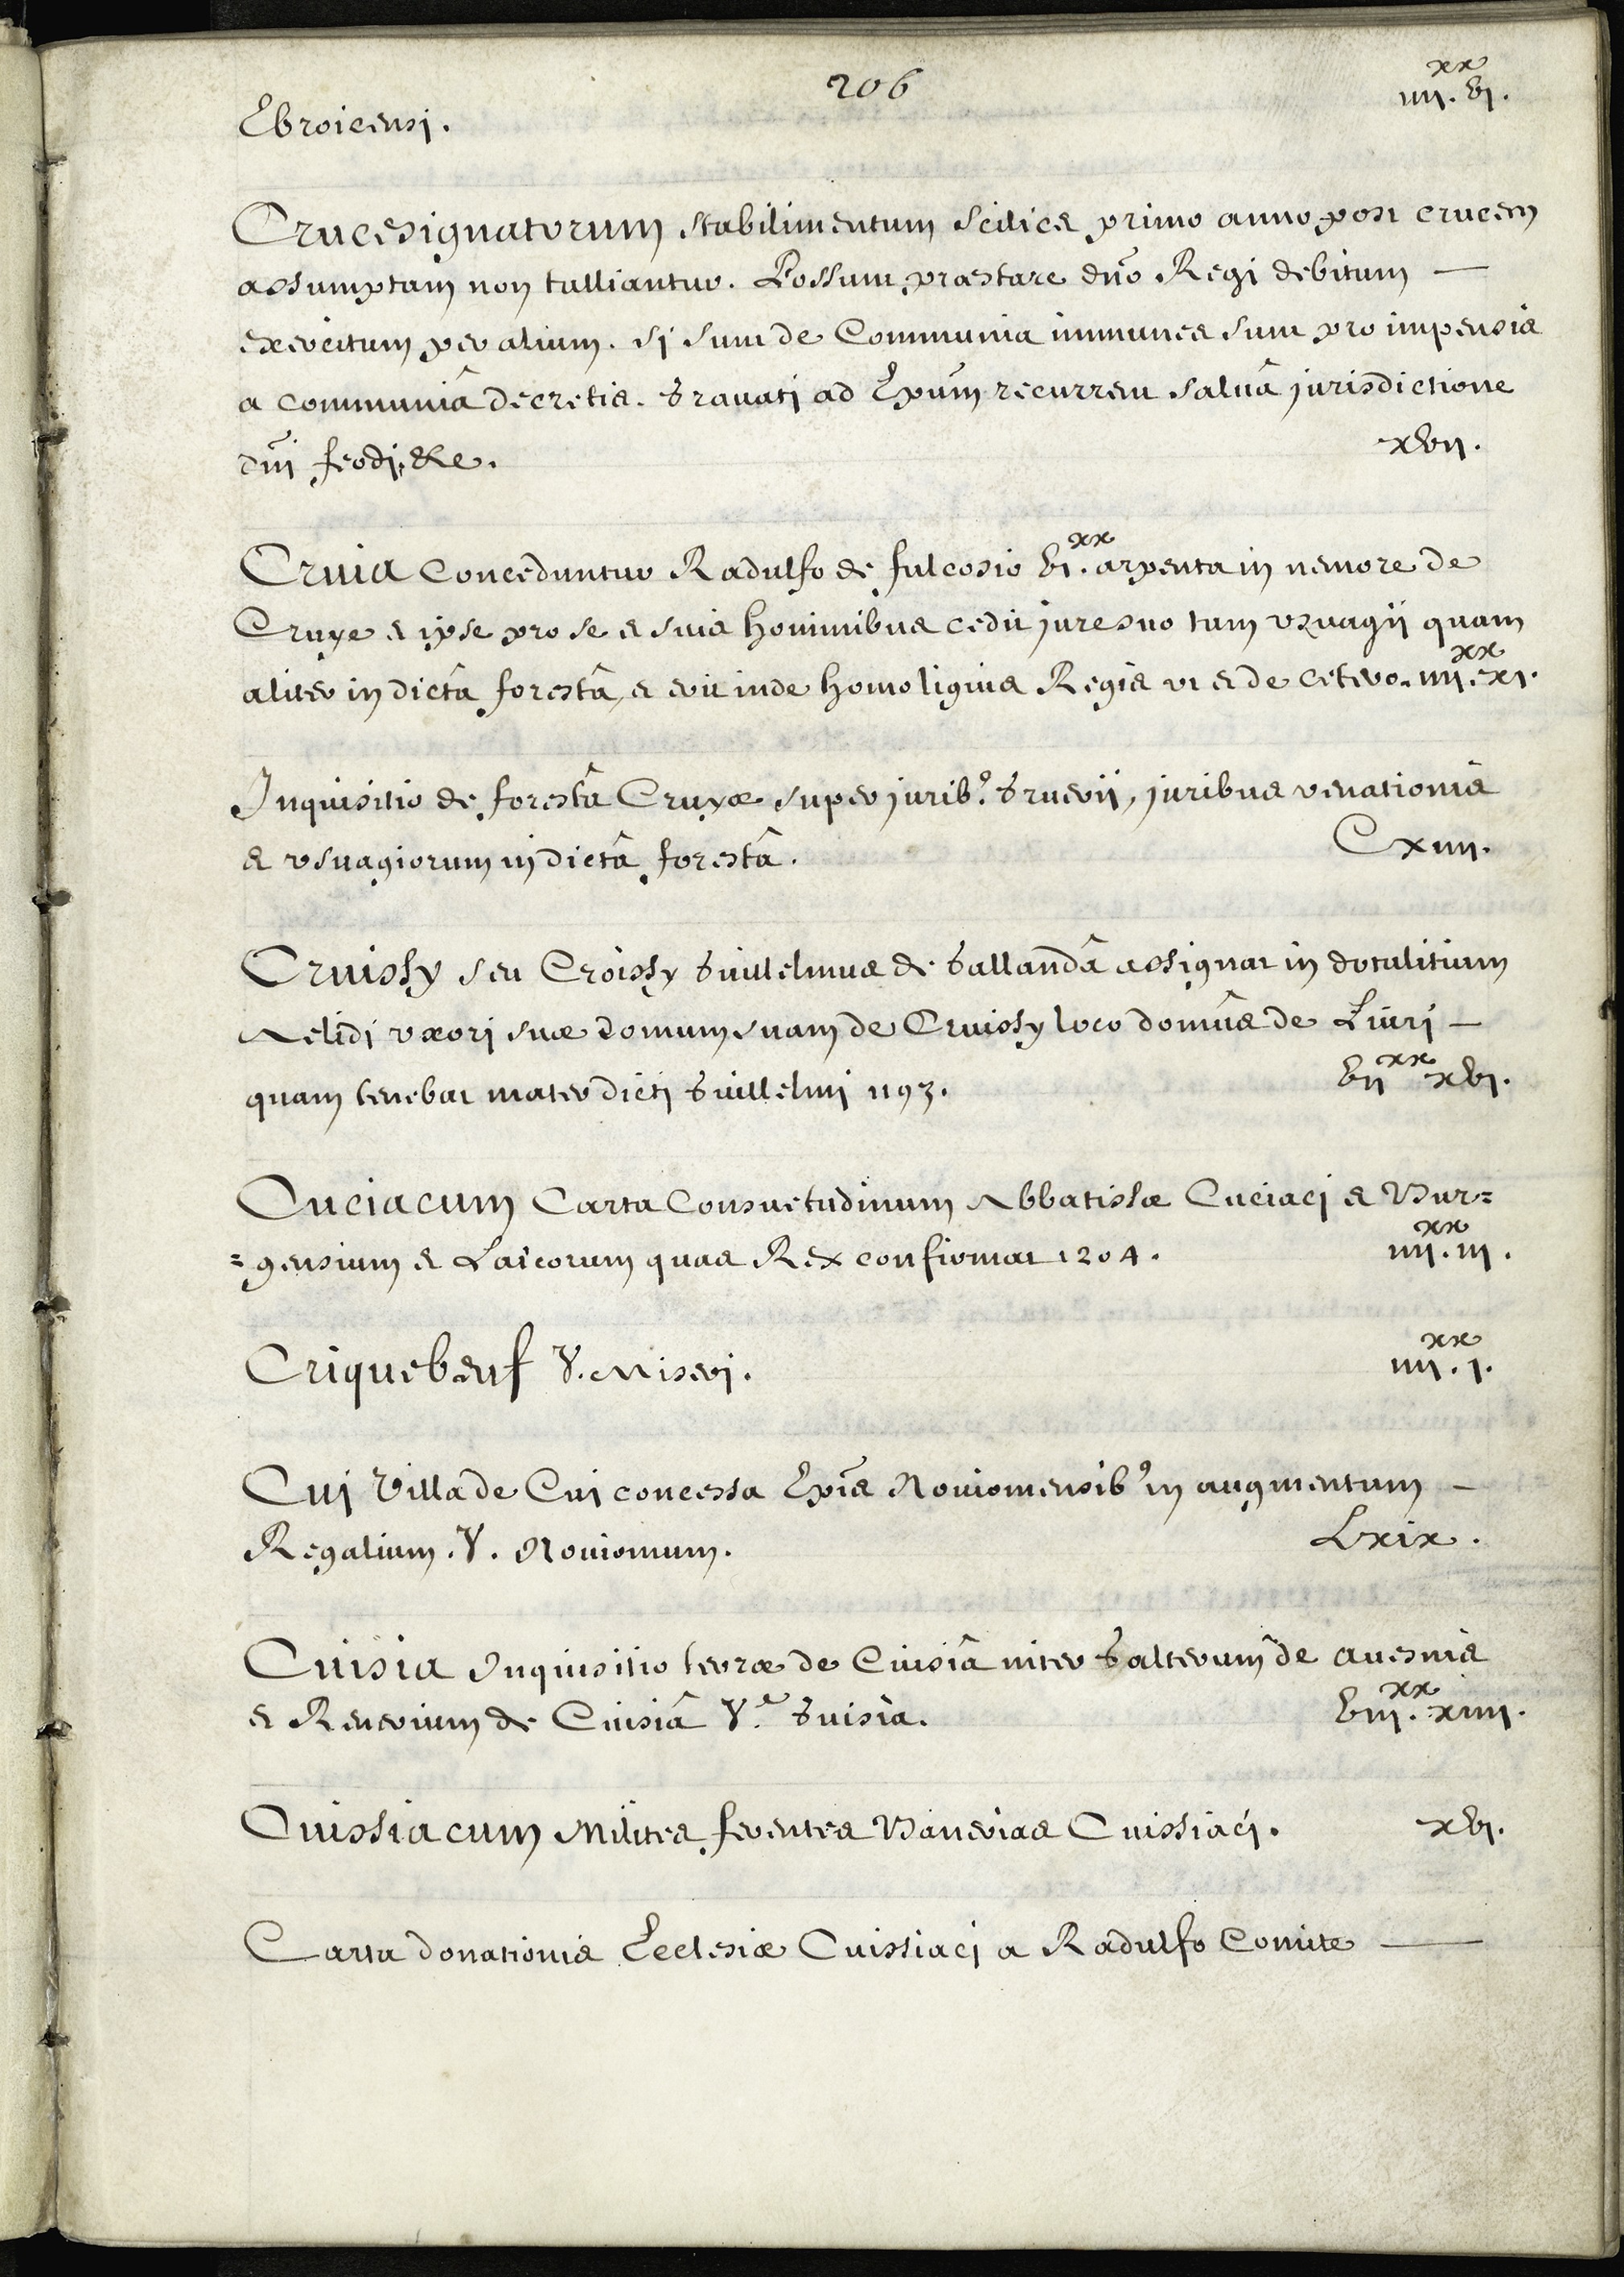 206
Ebroicensi. iiii^xx. vi.
Crucesignatorum stabilimentum scilicet primo anno post crucem
assumptam non talliantur. Possunt præstare dño Regi debitum —
exercitum per alium. si sunt de Communia immunes sunt pro impensis
a communiâ decretis. Gravati ad Epũm recurrent salvâ jurisdictione
dñi feodi, &c. xvii.
Cruia Conceduntur Radulfo de fulcosio vi^xx. arpenta in nemore de
Cruye et ipse pro se et suis hominibus cedit jure suo tam vzuagii quam
aliter in dictâ forestâ, et erit inde homo ligius Regis vt et de cetero. iiii^xx. xi.
Inquisitio de forestâ Cruyæ super jurib9. Gruerii, juribus venationis
et vsuagiorum in dictâ forestâ. Cxiiii.
Cruissy seu Croissy Guillelmus de Gallandâ assignat in dotalitium
Aelidi vxori suæ domum suam de Cruissy loco domûs de Liuri —
quam tenebat mater dicti Guillelmi 1193. vii^xx xvi.
Cuciacum Carta Consuetudinum Abbatissæ Cuciaci et Bur=
=gensium et Laicorum quas Rex confirmat 1204. iiii^xx. iii.
Criquebeuf V. Miseri. iiii^xx. i.
Cui Villa de Cui concessa Epĩs Nouiomensib9 in augmentum —
Regalium. V. Nouiomum. Lxix.
Cuisia Inquisitio terræ de Cuisiâ inter Galterum de auesnis
et Renerium de Cuisiâ V.ᵉ Guisia. viii^xx. xiiii.
Cuissiacum Milites ferentes Banerias Cuissiaci. xvi.
Carta donationis Ecclesiæ Cuissiaci a Radulfo Comite —